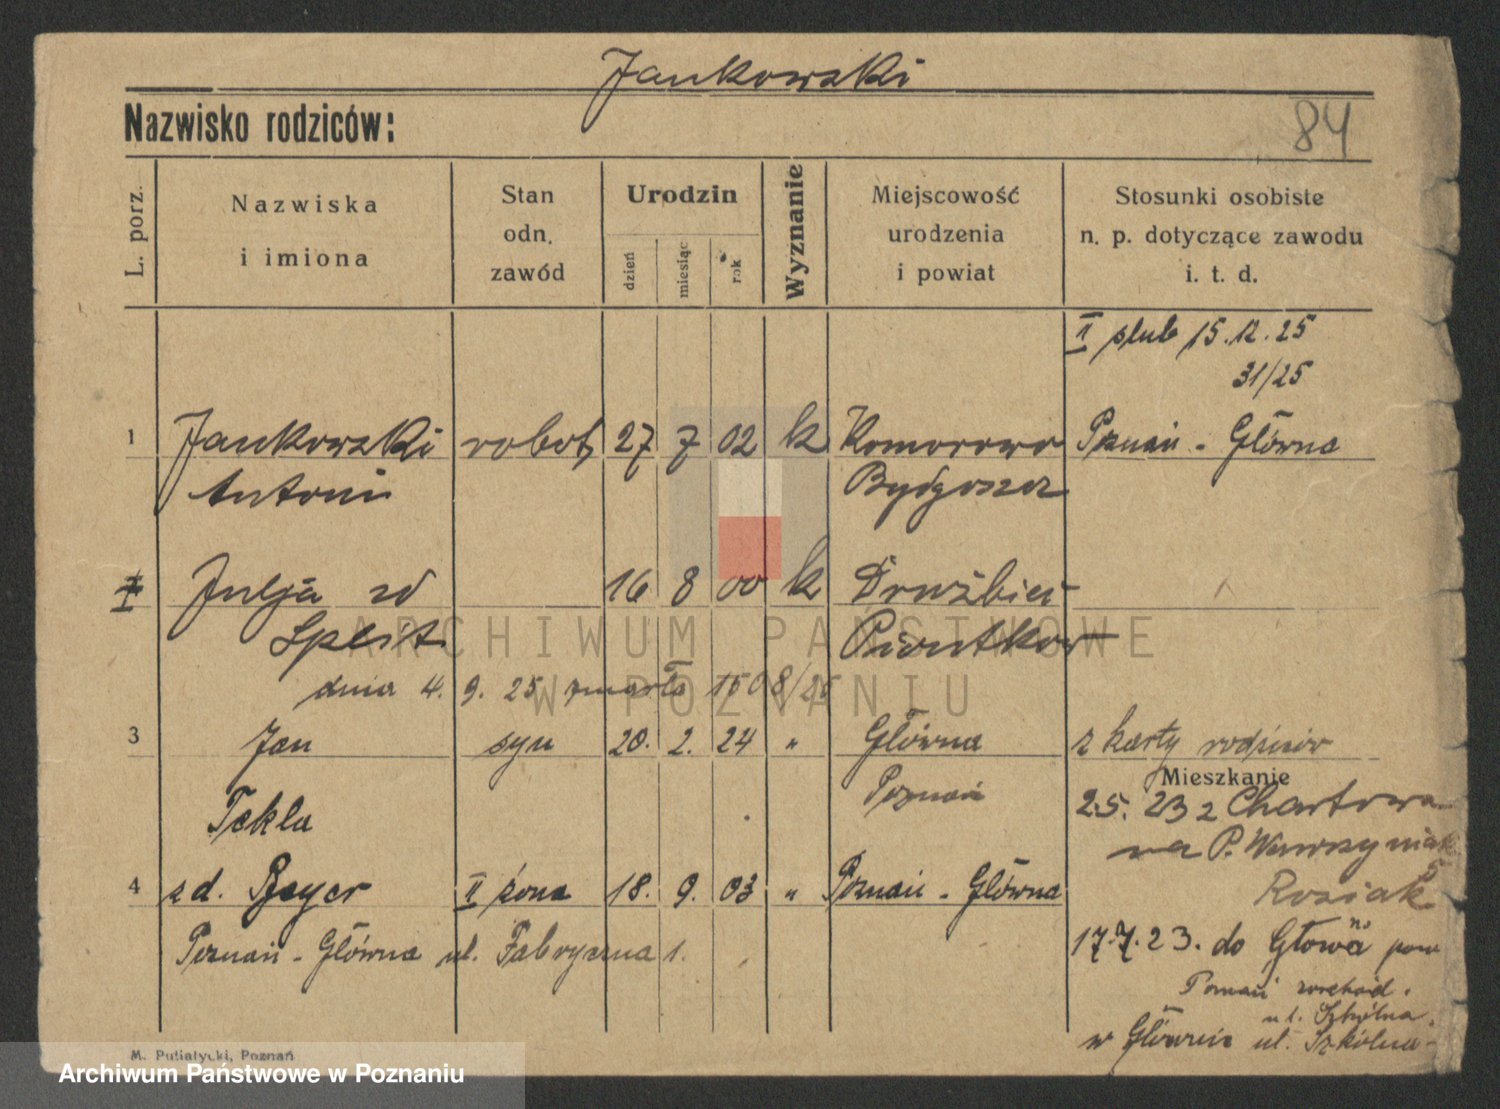 Jankowski
Nazwisko rodziców:
84
L. porz.
Nazwiska
i imiona
Stan
odn.
zawód
Urodzin
dzień
miesiąc
rok
Wyznanie
Miejscowość
urodzenia
i powiat
Stosunki osobiste
n. p. dotyczące zawodu
i. t. d.
II slub 15.12.25
31/25
1 Jankowski robot. 27 7 02 k Komorowo Poznań - Główna
Antoni Bydgoszcz
I Julja zd 16 8 00 k Drużbice
Piontkow
dnia 4. 9. 25 zmarła 1508/25
3 Jan syn 20. 2. 24 " Główna z karty rodziców
Poznań
Mieszkanie
2.5. 23 z Chartowa
na P. Wawrzyniak 5
Rosiak
Tekla
4 zd. Beyer II żona 18. 9. 03 " Poznań - Główna
Poznań - Główna ul. Fabryczna 1.
17.7.23. do Głowna pow
Poznań wschód.
ul. Szkólna.
w Głównie ul. Szkólna -
M. Putiatycki, Poznań
ARCHIWUM PAŃSTWOWE
W POZNANIU
Archiwum Państwowe w Poznaniu